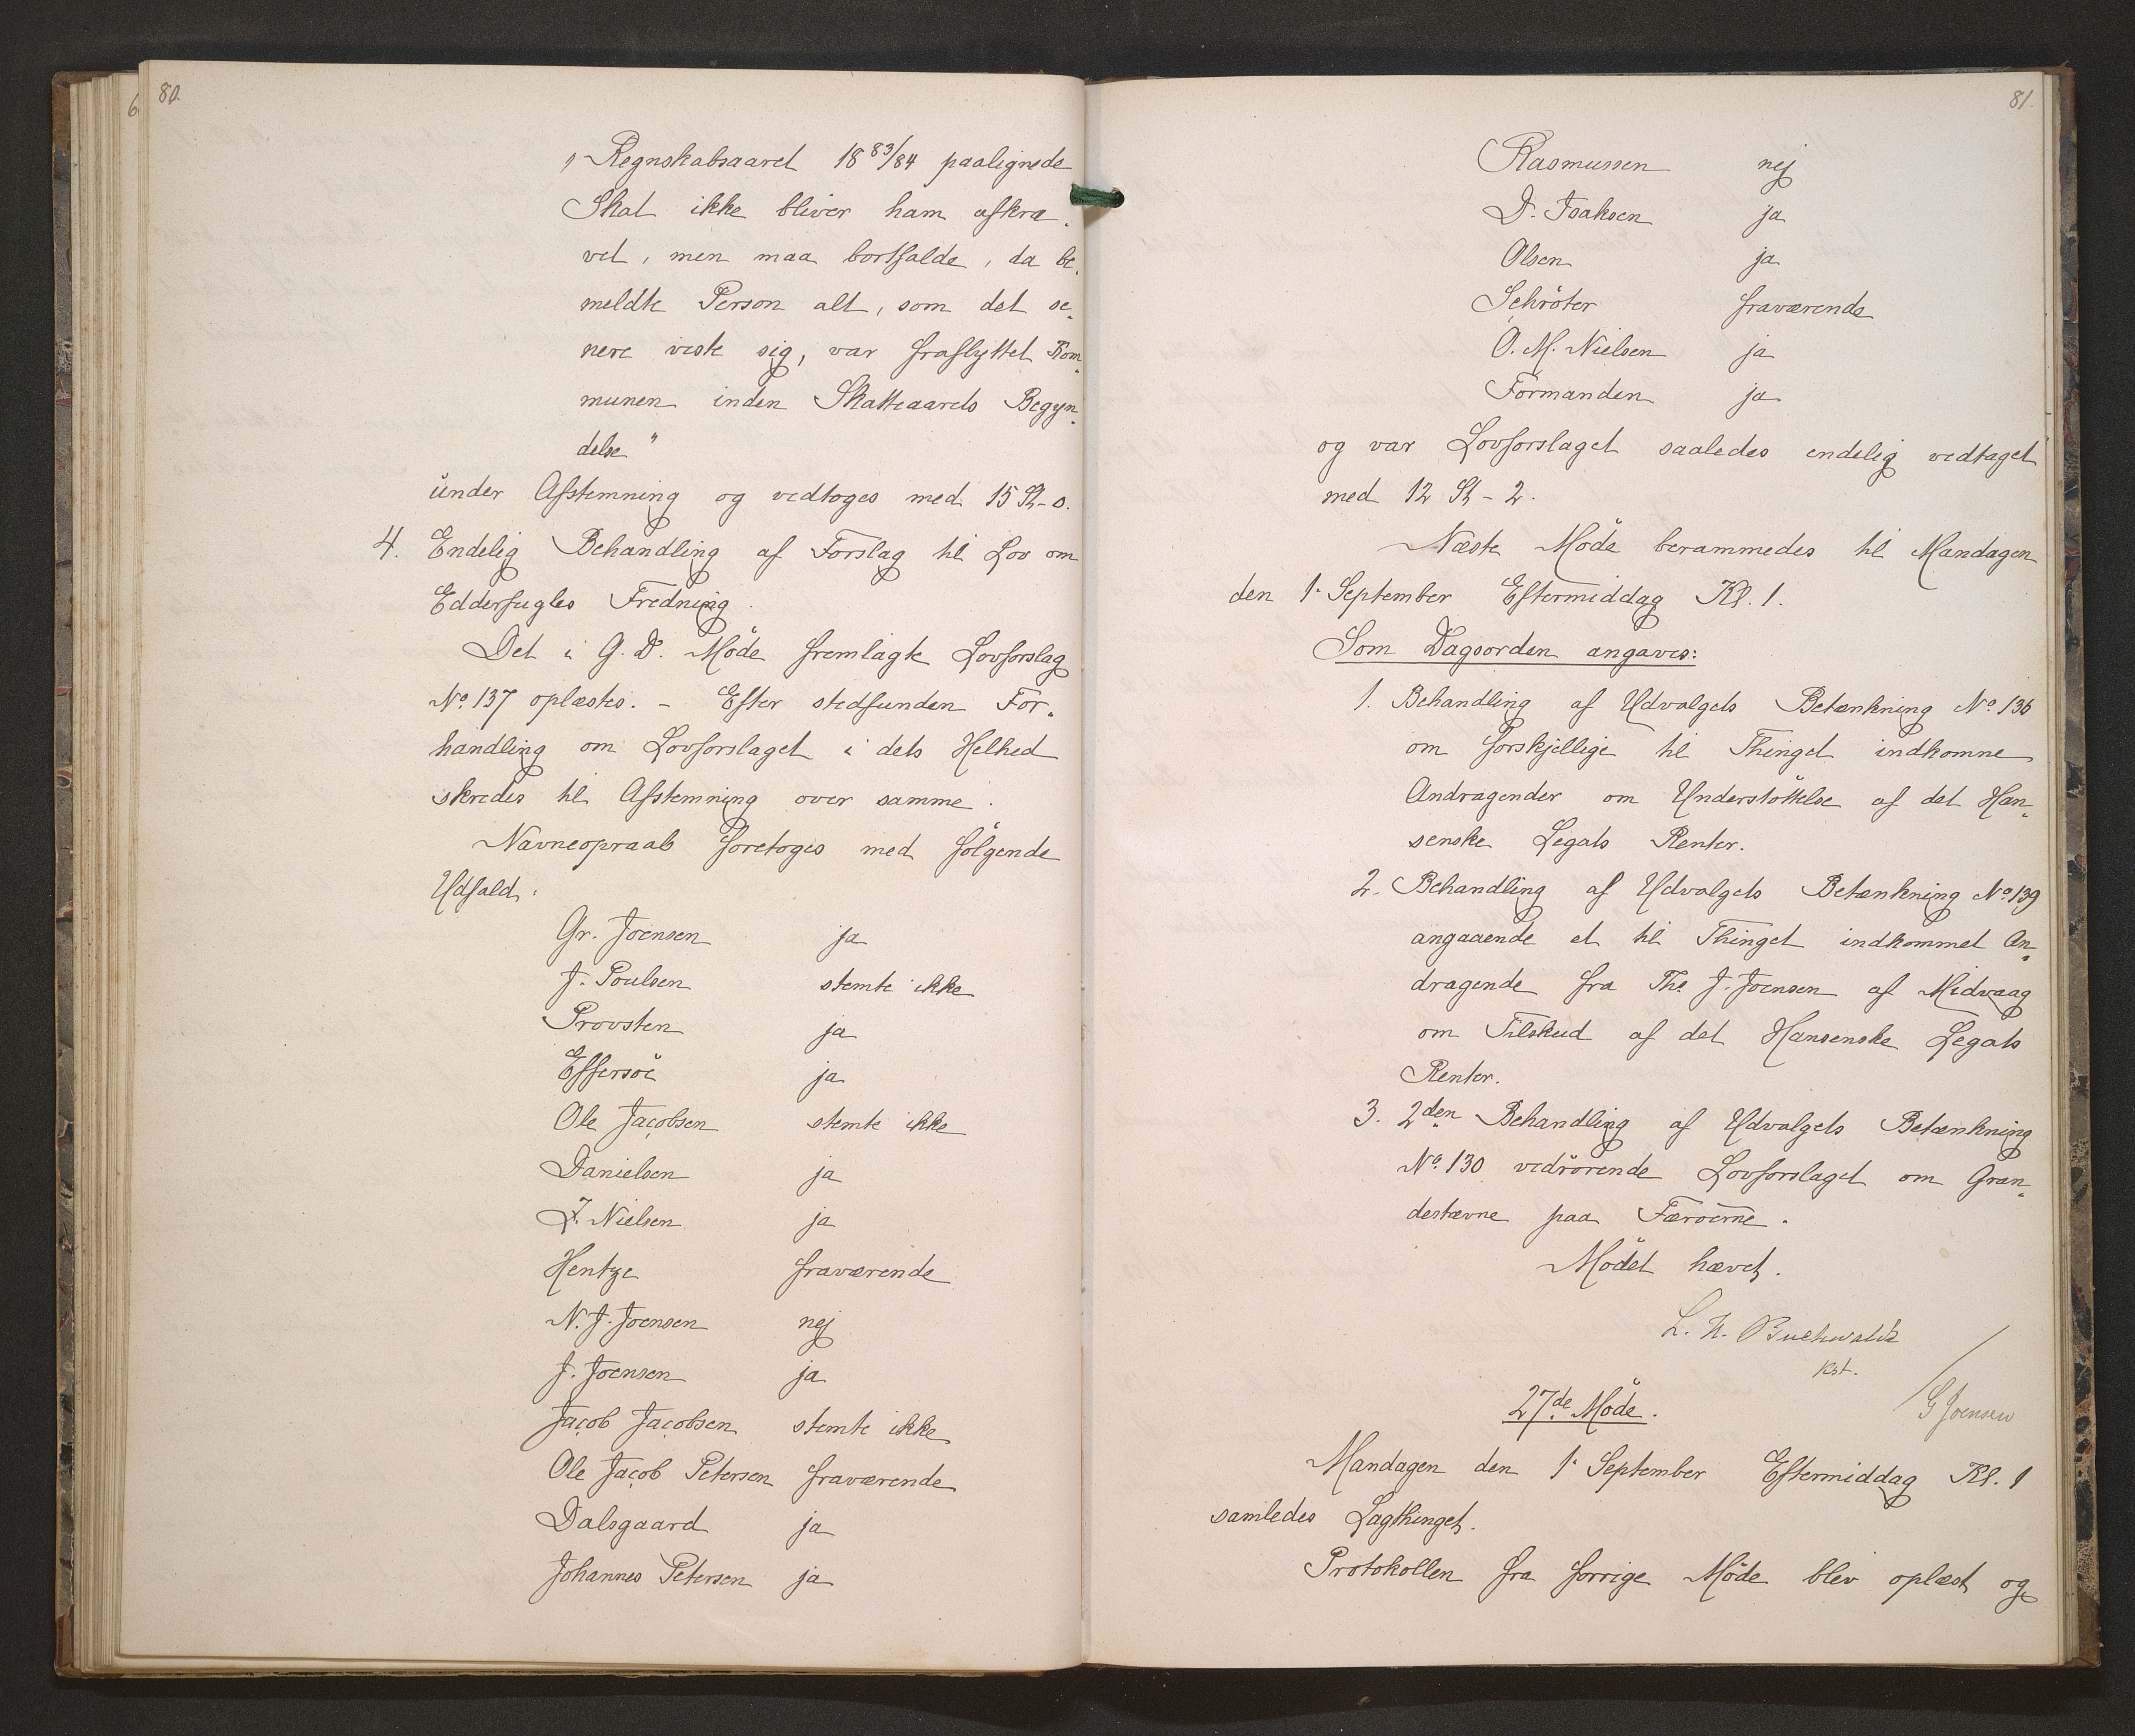 80.
6
" Regnskabsaaret 18 83/84 paalignede
Skat ikke bliver ham afkræ„
vet, men maa bortfalde, da be„
meldte Person alt, som det se„
nere viste sig, var fraflyttet Kom„
munen inden Skatteaarets Begyn„
delse"
under Afstemning og vedtoges med 15 St-0.
4. Endelig Behandling af Forslag til Lov om
Edderfugles Fredning.
Det i G. D. Möde fremlagte Lovforslag
No. 137 oplæstes. - Efter stedfunden For„
handling om Lovforslaget i dets Helhed
skredes til Afstemning over samme.
Navneopraab foretoges med fölgende
Udfald:
Gr. Joensen ja
J. Poulsen stemte ikke
Provsten ja
Effersöe ja
Ole Jacobsen stemte ikke
Danielsen ja
J. Nielsen ja
Hentze fraværende
N. J. Joensen nej
J. Joensen ja
Jacob Jacobsen stemte ikke
Ole Jacob Petersen fraværende
Dalsgaard ja
Johannes Petersen ja
81.
Rasmussen nej
D. Isaksen ja
Olsen ja
Schröter fraværende
O. M. Nielsen ja
Formanden ja
og var Lovforslaget saaledes endelig vedtaget
med 12 St - 2.
Næste Möde berammedes til Mandagen
den 1. September Eftermiddag Kl. 1.
Som Dagsorden angaves:
1. Behandling af Udvalgets Betænkning No. 136
om forskjellige til Thinget indkomne
Andragender om Understöttelse af det Han„
senske Legats Renter.
2. Behandling af Udvalgets Betænkning No. 139
angaaende et til Thinget indkommet An„
dragende fra Ths. J. Joensen af Midvaag
om Tilskud af det Hansenske Legats
Renter.
3. 2den Behandling af Udvalgets Betænkning
No. 130 vedrörende Lovforslaget om Gran„
destævne paa Færöerne.
Mödet hævet.
L. H. Buchwaldt
kst.
G Joensen
27de Möde.
Mandagen den 1. September Eftermiddag Kl. 1
samledes Lagthinget.
Protokollen fra forrige Möde blev oplæst og